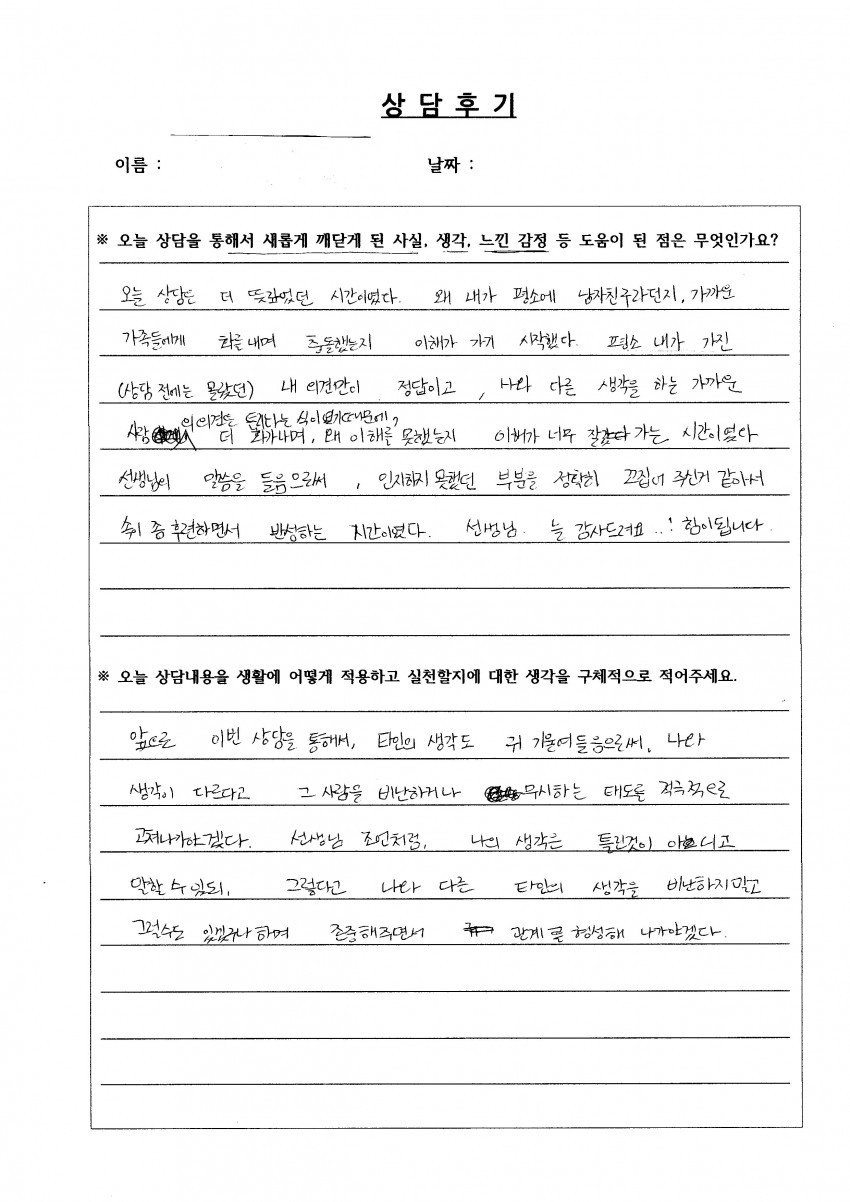 상 담 후 기
이름 :
날짜 :
※ 오늘 상담을 통해서 새롭게 깨닫게 된 사실, 생각, 느낀 감정 등 도움이 된 점은 무엇인가요?
오늘 상담은 더 뜻깊었던 시간이었다. 왜 내가 평소에 남자친구라던지, 가까운
가족들에게 화를내며 충돌했는지 이해가 가기 시작했다. 평소 내가 가진
(상담 전에는 몰랐던) 내 의견만이 정답이고, 나와 다른 생각을 하는 가까운
의 의견은 틀리다는 식이었기때문에,
사람 더 화가나며, 왜 이해를 못했는지 이해가 너무 잘 가는 시간이었다
선생님의 말씀을 들음으로써, 인지하지 못했던 부분을 정확히 끄집어 주신거 같아서
속이 좀 후련하면서 반성하는 시간이었다. 선생님. 늘 감사드려요..! 힘이됩니다.
※ 오늘 상담내용을 생활에 어떻게 적용하고 실천할지에 대한 생각을 구체적으로 적어주세요.
앞으로 이번 상담을 통해서, 타인의 생각도 귀 기울여들음으로써, 나와
생각이 다르다고 그 사람을 비난하거나 무시하는 태도를 적극적으로
고쳐나가야겠다. 선생님 조언처럼, 나의 생각은 틀린것이 아니고
말할 수 있되, 그렇다고 나와 다른 타인의 생각을 비난하지말고
그럴수도 있겠구나 하며 존중해주면서 관계를 형성해 나가야겠다.